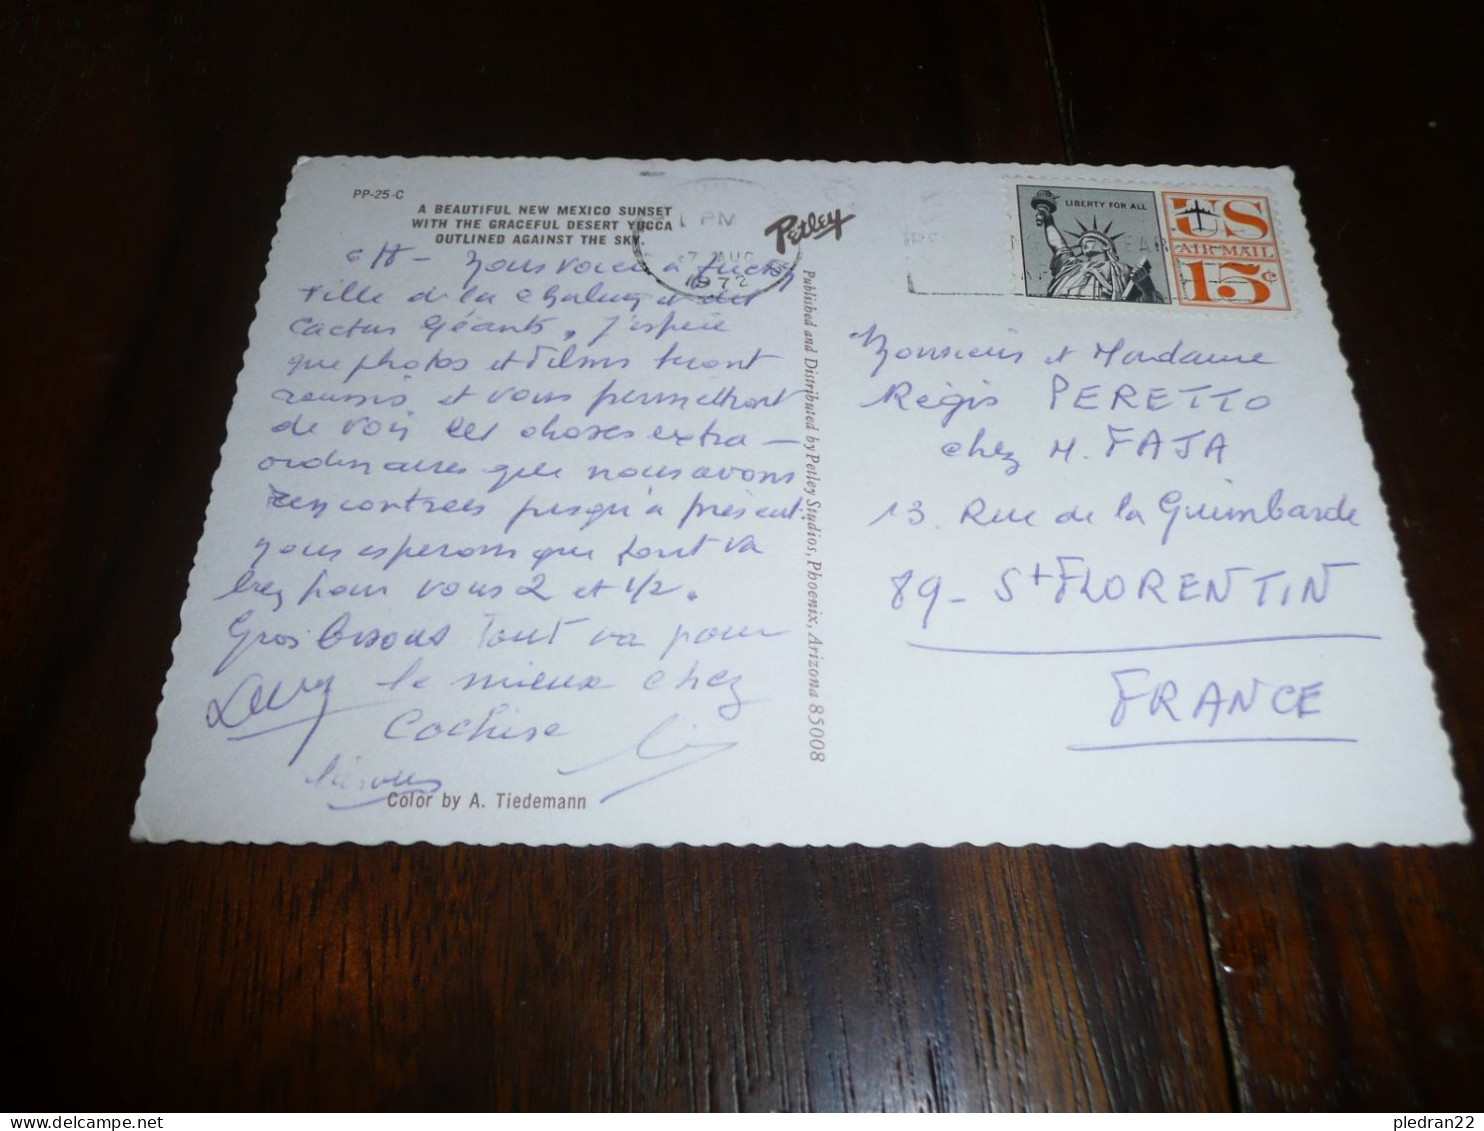 PP-25-C
A BEAUTIFUL NEW MEXICO SUNSET
WITH THE GRACEFUL DESERT YUCCA
OUTLINED AGAINST THE SKY.
Petley
PM
AUG
1972
LIBERTY FOR ALL
US
AIR MAIL
15c
Published and Distributed by Petley Studios, Phoenix, Arizona 85008
à
ville de la chaleur et des
cactus Géants, J'espère
que photos et films seront
réussis et vous permettront
de voir les choses extra-
ordinaires que nous avons
rencontrées jusqu'à présent.
nous esperons que tout va
bien pour vous 2 et 1/2.
Gros bisous Tout va pour
le mieux chez
Cochise
bisous
Color by A. Tiedemann
Monsieur et Madame
Régis PERETTO
chez M. FAJA
13. Rue de la Guimbarde
89- St FLORENTIN
FRANCE
pledran22